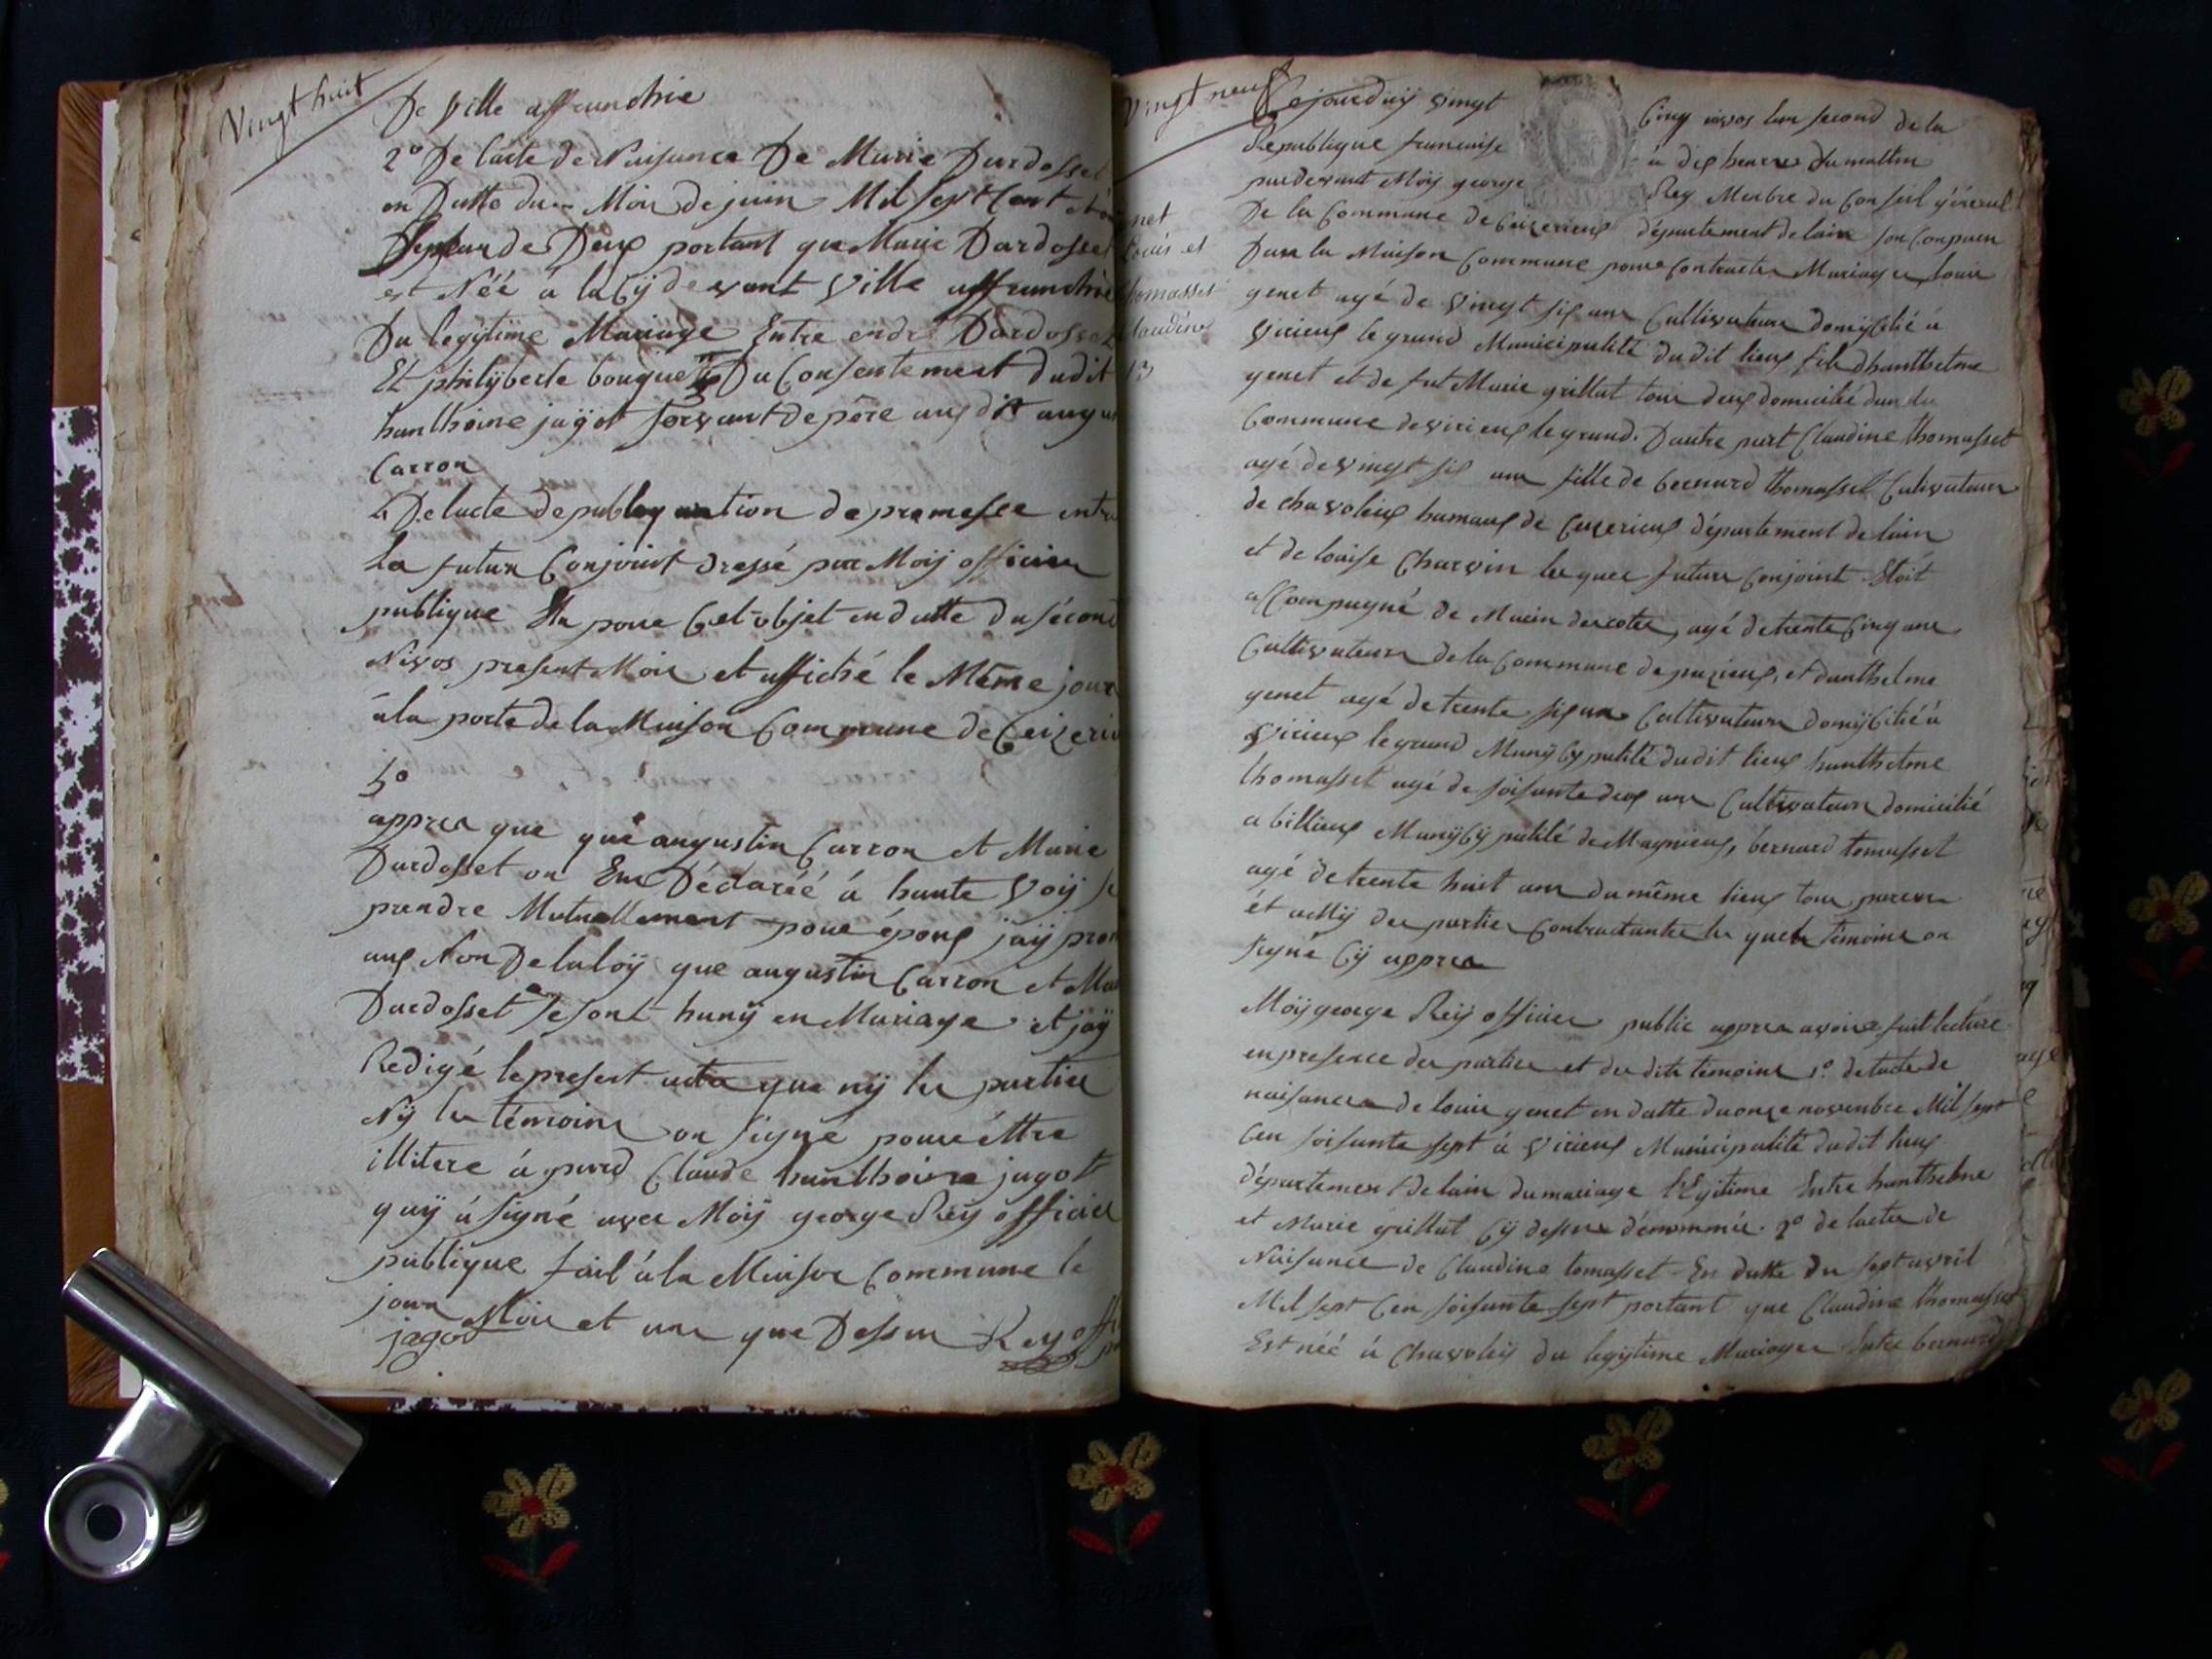 Vingt huit
De Ville affranchie
2° De lacte de Naisance De Marie Dardosset
en Datte du Mois de juin Mil sept Cent
Deux portant que Marie Dardosset
est Néé a la Cÿ devant Ville affranchie
Du legytime Mariage Entre endré Dardosset
Et philyberte bouguet Du Consentement dudit
hanthoine jagot servant de père aux dit augus
Carron
De lacte de publiquation de promesse entre
La futur Conjoint dressé par Moÿ officier
publique Elu pour Cet objet en datte du sécond
Nivos present Mois et affiché le Même jour
á la porte de la Maison Commune de Ceizeri
appres que que augustin Carron et Marie
Dardosset on Eux Déclaréé á haute Voiÿ se
prendre Mutuellement pour époux jaÿ pron
aux Non De la loÿ que augustin Carron et Ma
Dardosset se sont hunÿ en Mariage et jaÿ
Redigé le present acte que nÿ les parties
Nÿ les témoins on signé pour éttre
illitere á pard Claude hanthoine jagot
quÿ á signé avec Moÿ george Reÿ officier
publique fait á la Maison Commune le
jour Mois et an que Dessus Rey offi
jagot
Vingt neuf
net
Louis et
homasset
laudine
13
Cejourduÿ Vingt Cinq nivos lan second de la
Republique francaise a dix heures du mattin
pardevant Moÿ george Rey Menbre du Conseil général
De la Commune de Ceizerieux département de lain son Conparu
Dans la Maison Commune pour Contracter Mariages, louis
genet agé de Vingt six ans Cultivateur domiÿcilié á
Virieux le grand Municipalité du dit lieux fils dhanthelme
genet et de fut Marie grillat tous deux domicilié dans la
Commune de virieux le grand. Dautre part Claudine thomasset
agé de Vingt six ans fille de bernard thomasset Cultivateur
de chavoleix hamaux de Ceizerieux département de lain
et de louise Charvin les quels futur conjoint Etoit
accompagné de Marin descotes, agé de trente Cinq ans
Cultivateur de la Commune de pazieux, et danthelme
genet agé de trente six ans Cultivateur domÿcilié á
Virieux le grand Munÿcypalité dudit lieux hanthelme
thomasset agé de soisante deux ans Cultivateur domicilié
a billieux Munÿcÿpalité de Magnieux, bernard tomasset
agé de trente huit ans du même lieux tous parens
ét aMÿ des parties contractantes les quels témoins on
signé Cÿ appres
Moÿ george Reÿ officier public appres avoir fait lecture
en presence des parties et des dits témoins 1° de lacte de
naisance de louis genet en datte du onze novembre Mil sept
Cen soisante sept á Virieux Municipalité dudit lieux
département de lain du mariage légitime Entre hanthelme
et Marie grillat Cÿ dessus dénommés. 2° de lacte de
Naisance de Claudine tomasset En datte Du sept avril
Mil sept Cen soisante sept portant que Claudine thomasset
Est néé á Chavoleÿ du legytime Mariages Entre bernard